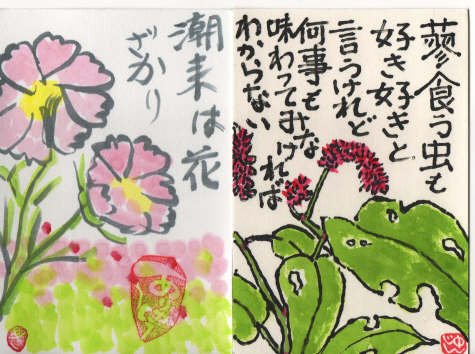 潮来は花
ざかり
蓼食う虫も
好き好きと。
言うけれど
何事も
味わってみなければ
わからない